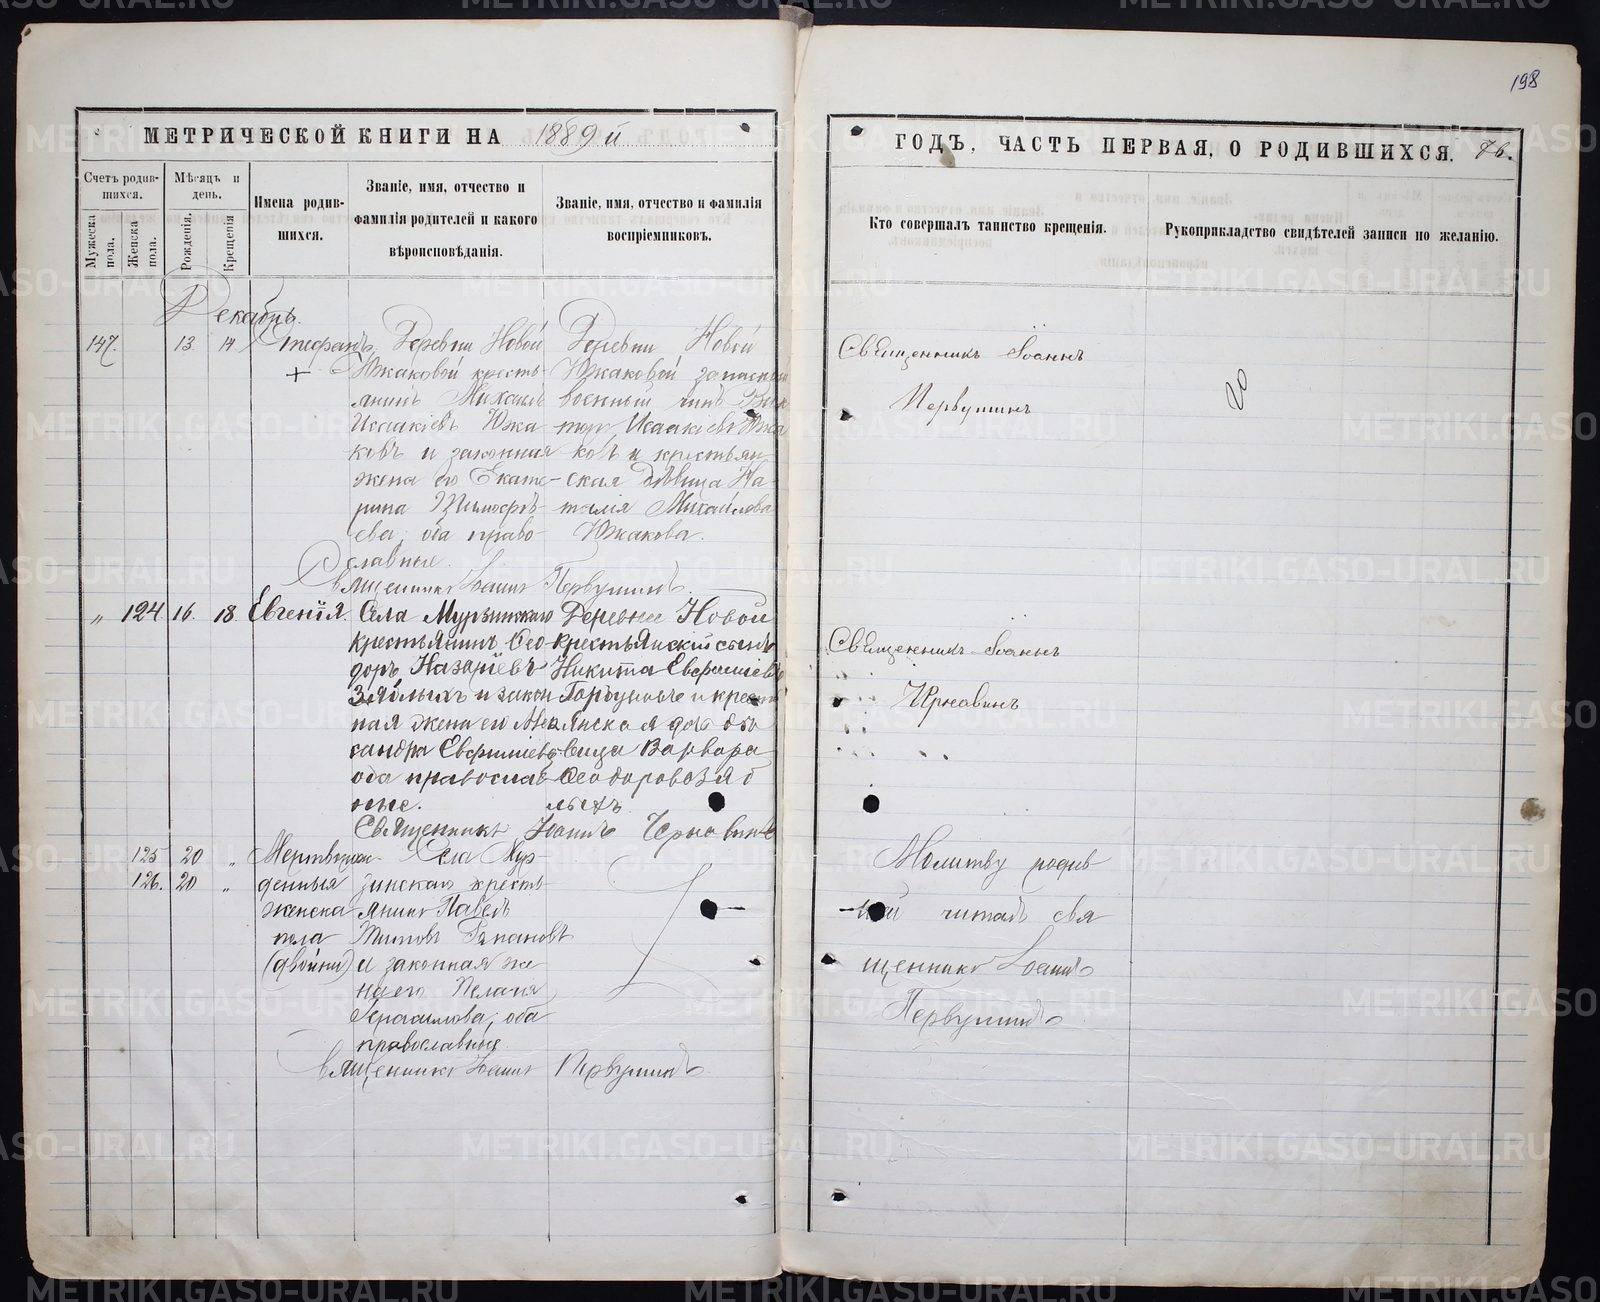 198
МЕТРИЧЕСКОЙ КНИГИ НА 1889 й
ГОДЪ, ЧАСТЬ ПЕРВАЯ, О РОДИВШИХСЯ. 76.
Счетъ родившихся.
Мужеска пола.
Женска пола.
Мѣсяцъ и день.
Рожденія.
Крещенія
Имена родившихся.
Званіе, имя, отчество и фамилія родителей и какого вѣроисповѣданія.
Званіе, имя, отчество и фамилія воспріемниковъ.
Кто совершалъ таинство крещенія.
Рукоприкладство свидѣтелей записи по желанію.
Декабрь.
147. 13. 14 Стефанъ
Деревни Новой
Южаковой кресть-
янинъ Михаилъ
Исаакіевъ Южа
ковъ и законная
жена его Екате-
рина Тимофѣ-
ева, оба право-
славные.
Деревни Новой
Южаковой запасный
военный чинъ Вик
торъ Исаакіевъ Южа
ковъ и крестьян-
ская дѣвица На-
талія Михайлова
Южакова.
Священникъ Іоаннъ
Первушинъ
Священникъ Іоаннъ Первушинъ
„ 124 16. 18. Евгенія.
Села Мурзинскаго
крестьянинъ Ѳео
доръ Назаріевъ
Зяблыхъ и закон
ная жена его Алек
сандра Евфиміева
оба православ
ные.
Деревни Новой
крестьянскій сынъ
Никита Евфиміевъ
Горбуновъ и крест
янская дочь дѣ
вица Варвара
Ѳеодорова Зяб
лыхъ
Священникъ Іоаннъ
Чернавинъ
Священникъ Іоаннъ Чернавинъ
125 20 „
126. 20 „
Мертворож-
денныя
женска
пола
(двойни)
Села Мур-
зинскаго кресть-
янинъ Павелъ
Титовъ
и законная же
на его Пелагія
Герасимова, оба
православные.
Молитву родив
шей читалъ свя
щенникъ Іоаннъ
Первушинъ
Священникъ Іоаннъ Первушинъ
METRIKI.GASO-URAL.RU